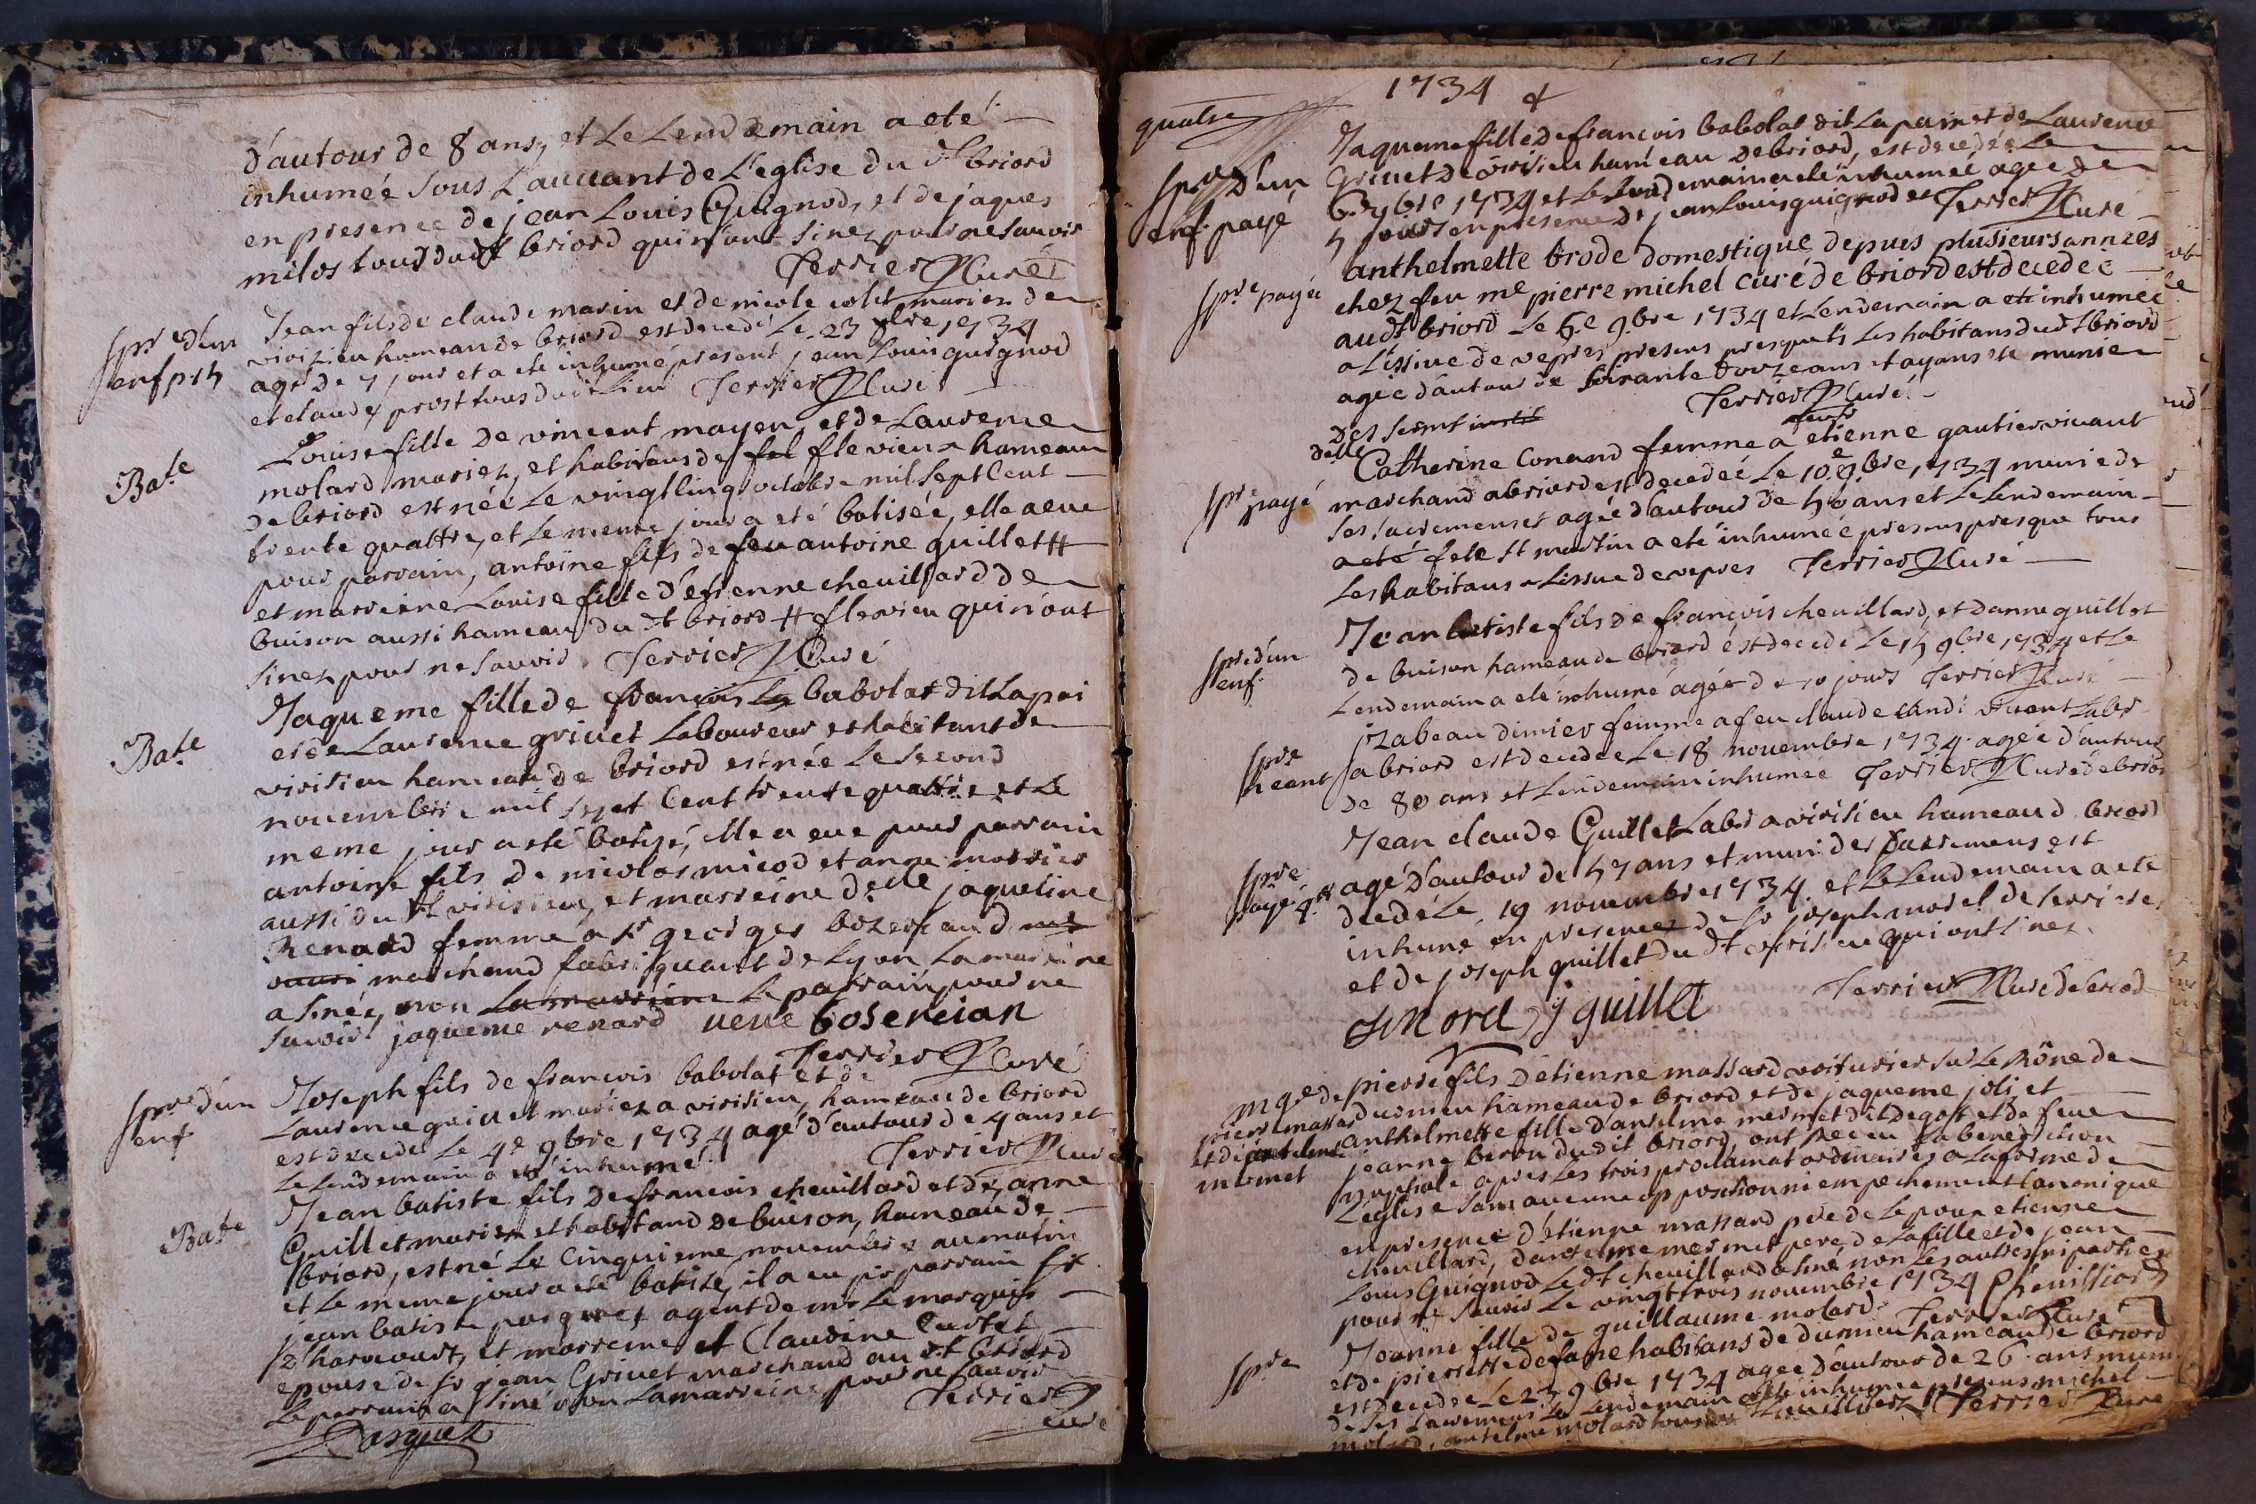 d'autour de 8 ans, et Le Lendemain a eté
inhumée sous L'auuant de L'eglise du dt briord
en presence de jean Louis Guignod, et de jaques
milos tous dudt briord qui n'ont sinez pour ne sauoir
Terrier Curé
spre d'un
enf
Jean fils de claude marin et de nicole colet mariez de
virizieu hameau de briord est decedé Le 23 8bre 1734
agé de 7 jours et a eté inhumé present jean Louis guignod
et claude prost tous dudit Lieu Terrier Curé
Bate
Louise fille de vincent mayen, et de Laurence
molard mariez, et habitans de fel flevieux hameau
de briord est née Le vingt cinq octobre mil sept Cent
trente quattre, et Le meme jour a eté batisée, elle a eue
pour parrain, antoine fils de feu antoine guillet #
et marreine Louise fille d'etienne cheuillard de
buison aussi hameau du dt briord # flevieu qui n'ont
sinez pour ne sauoir Terrier Curé
Bate
Jaqueme fille de françois La babolat dit Lapai
et de Laurence griuet Laboureur et habitant de
virisieu hameau de briord est née Le second
nouembre mil sept Cent trente quattre et Le
meme jour a eté batisé, elle a eue pour parrain
antoine fils de nicolas micod et anne marrier
aussi du dt virisieu, et marreine delle jaqueline
Renard femme a sr georges bozerciand mr
ouuri marchand fabriquant de Lyon La marreine
a sinée, non La marreine Le parrain pour ne
sauoir jaqueme renard ueue bosercian
Terrier Curé
spre d'un
enf
Joseph fils de françois babolat et de
Laurence griuet mariez a virisieu, hameau de briord
est decedé Le 4e 9bre 1734 agé d'autour de 4 ans et
Le Lendemain a eté inhumé Terrier Curé
Bate
Jean batiste fils de françois cheuillard et de, anne
Guillet mariez et habitans de buison, hameau de
briord, est né Le Cinquieme nouembre au matin
et Le meme jour a eté batisé, il a eu pr parrain sr
jean batiste pasquet agent de mr Le marquis
d'harcourt, et marreine et Claudine Curtet
epouse de sr jean Griuet marchand au dt briord
Le parrain a siné non La marreine pour ne sauoir
Terrier
curé
Pasquet
1734
quatre
spre d'un
enf payé
Jaqueme fille de françois babolat dit Lapai et de Laurence
griuet de virisieu hameau de briord, est decedée Le
6e 9bre 1734 et Le Lendemain a eté inhumée agée de
4 jours en presence de jean Louis guignod et Terrier Curé
spre payée
anthelmette brode domestique depuis plusieurs années
chez feu me pierre michel curé de briord est decedee
audt briord Le 6e 9bre 1734 et Lendemain a eté inhumée
a L'issue de vepres presens presque ts Les habitans dudt briord
agée d'autour de soixante douze ans et ayant eté munie
des sacmts Terrier Curé
spre payé
delle Catherine Conand femme a feu sr etienne gautier viuant
marchand a briord est decedeé Le 10e 9bre 1734 munie de
ses sacremens et agée d'autour de 50 ans et Le Lendemain
a eté fete st martin a eté inhumée presens presque tous
Les habitans a Lissue de vepres Terrier Curé
spre d'un
enf.
Jean batiste fils de françois cheuillard, et d'anne guillet
de buison hameau de briord est decedé Le 15 9bre 1734 et Le
Lendemain a eté inhumé agée de 10 jours Terrier Curé
spre
jzabeau dimier femme a feu claude viuant Labr
a briord est decedée Le 18 nouembre 1734 agée d'autour
de 80 ans et Lendemain inhumée Terrier Curé de briord
spre
payé
Jean claude Guillet Labr a virisieu hameau d briord
agé d'autour de 47 ans et muni des sacremens est
decedé Le 19 nouembre 1734 et Le Lendemain a eté
inhumé en presence de sr joseph morel de Serrieres
et de joseph guillet du dt virisieu qui ont sinez
Terrier Curé de briord
J Morel j guillet
mge de
pierre massard
et d'antelme
mermet
pierre fils d'etienne massard voiturier sur Le Rône de
dumieu hameau de briord et de jaqueme joli et
anthelmette fille d'anselme mermet dit degoft et de feue
jeanne berou dudit briord, ont receu La benediction
nuptiale apres Les trois proclamat ordinaires a La forme de
L'eglise sans aucune opposition ni empechement Canonique
en presence d'etienne massard pere de Lepoux etienne
cheuillard, d'anselme mermet pere de La fille et de jean
Louis Guignod Le dt cheuillard a siné non Les autres ni parties
pour ne sauoir Le vingt trois nouembre 1734 Cheuillard
Terrier Curé
spre
Jeanne fille de guillaume molard
et de pierrette defare habitans de dumieu hameau de briord
est decedee Le 23 9bre 1734 agée d'autour de 26 ans munie
de ses sacremens Le Lendemain a eté inhumée presens michel
molard, antelme molard tous Terrier Curé